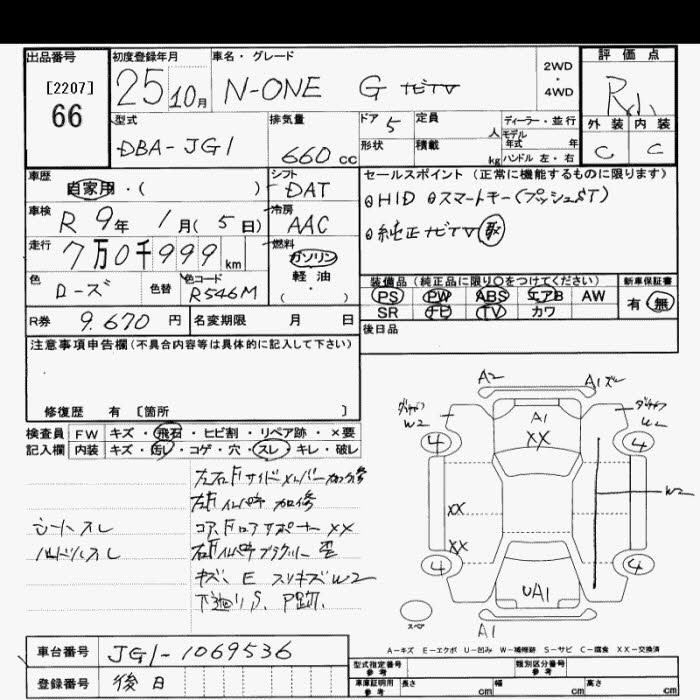 出品番号
[2207]
66
初度登録年月
25 10月
車名・グレード
N-ONE G ナビTV
2WD
・
4WD
評価点
外装 内装
C C
型式
DBA-JG1
排気量
660 cc
ドア 5
定員
人
形状
積載
kg
ディーラー・並行
モデル
年式 年
ハンドル 左・右
車歴
自家用・( )
シフト
DAT
車検
R 9年 1月(5日)
冷房
AAC
走行
7万0千999km
燃料
ガソリン
軽油
( ・ )
色
ローズ
色替
色コード
R546M
セールスポイント(正常に機能するものに限ります)
HID スマートキー(プッシュST)
純正ナビTV
装備品(純正品に限り○をつけてください)
新車保証書
PS PW ABS エアB AW
有 無
SR ナビ TV カワ
R券 9.670 円
名変期限 月 日
後日品
注意事項申告欄(不具合内容等は具体的に記入して下さい)
修復歴 有 [箇所 ]
検査員
記入欄
FW キズ・飛石・ヒビ割・リペア跡・×要
内装 キズ・汚レ・コゲ・穴・スレ・キレ・破レ
シートスレ
ハンドルスレ
コア、ドロアサポーナー XX
キズ、E スリキズW2
下廻りS、P跡
A2
A1
W2
W2
A1
XX
4
4
XX
W2
XX
4
4
UA1
スペア
A1
A-キズ E-エクボ U-凹み W-補修跡 S-サビ C-腐食 XX-交換済
車台番号 JG1-1069536
登録番号 後日
型式指定番号
参考
類別区分番号
参考
車庫証明用
参考
長さ cm
幅 cm
高さ cm